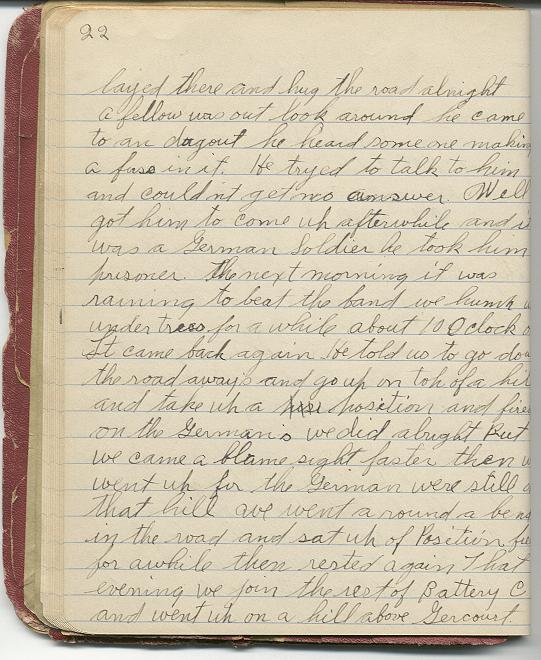 22
layed there and hug the road alnight
a fellow was out look around he came
to an dugout he heard some one makin
a fuss in it. He tryed to talk to him
and couldnt get no answer. Well
got him to come up afterwhile and i
was a German Soldier he took him
prisoner. The next morning it was
raining to beat the band we hunk u
under trees for a while about 10 Oclock
Lt came back again He told us to go dow
the road aways and go up on top of a hil
and take up a position and fire
on the Germans we did alright But
we came a blame sight faster then w
went up for the German were still o
that hill we went a round a ben
in the road and sat up of Position fir
for awhile then rested again That
evening we join the rest of Battery C
and went up on a hill above Gercourt.